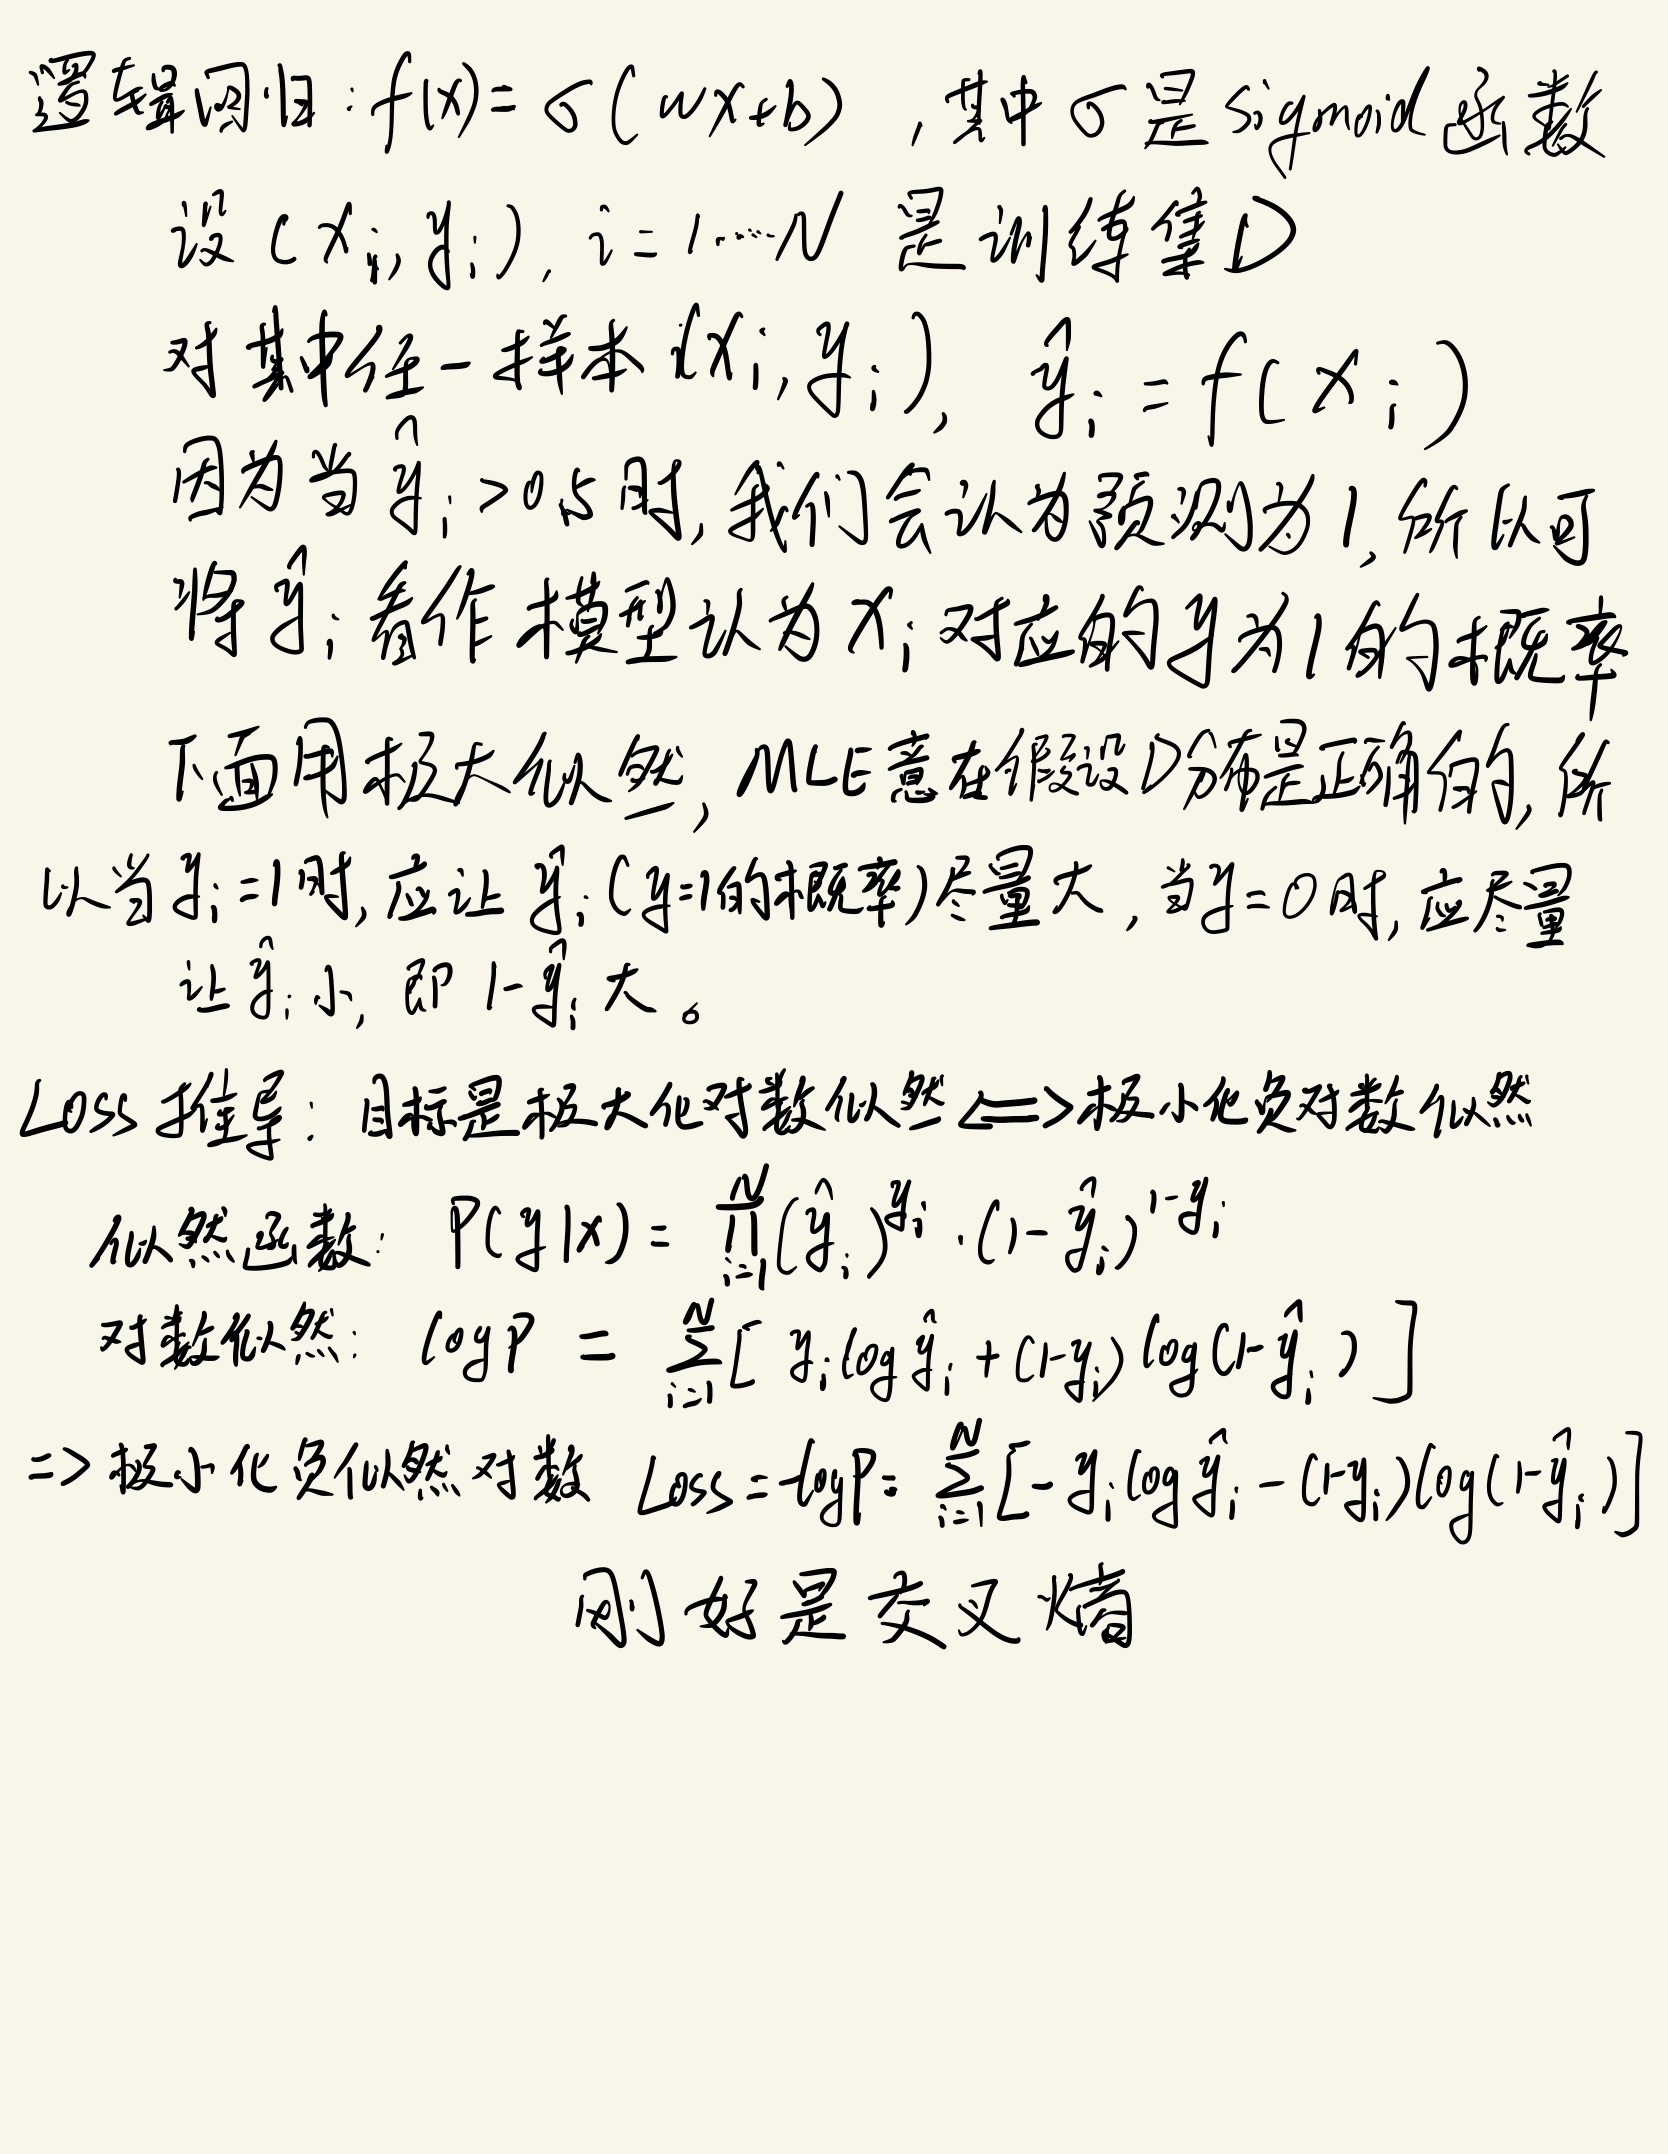 逻辑回归：f(x)= σ(wx+b)，其中σ是sigmoid函数
设(xi,yi), i=1……N 是训练集D
对其中任一样本(xi,yi), ŷi=f(xi)
因为当ŷi>0.5时,我们会认为预测为1,所以可
将ŷi看作模型认为xi对应的y为1的概率
下面用极大似然,MLE意在假设D分布是正确的,所
以当yi=1时,应让ŷi(y=1的概率)尽量大,当y=0时,应尽量
让ŷi小,即1-ŷi大。
Loss推导：目标是极大化对数似然<=>极小化负对数似然
似然函数: P(y|x)= ∏_{i=1}^{N}(ŷi)^{yi}·(1-ŷi)^{1-yi}
对数似然: logP = ∑_{i=1}^{N}[yi log ŷi+(1-yi)log(1-ŷi)]
=>极小化负似然对数 Loss=-logP=∑_{i=1}^{N}[-yi log ŷi-(1-yi)log(1-ŷi)]
刚好是交叉熵